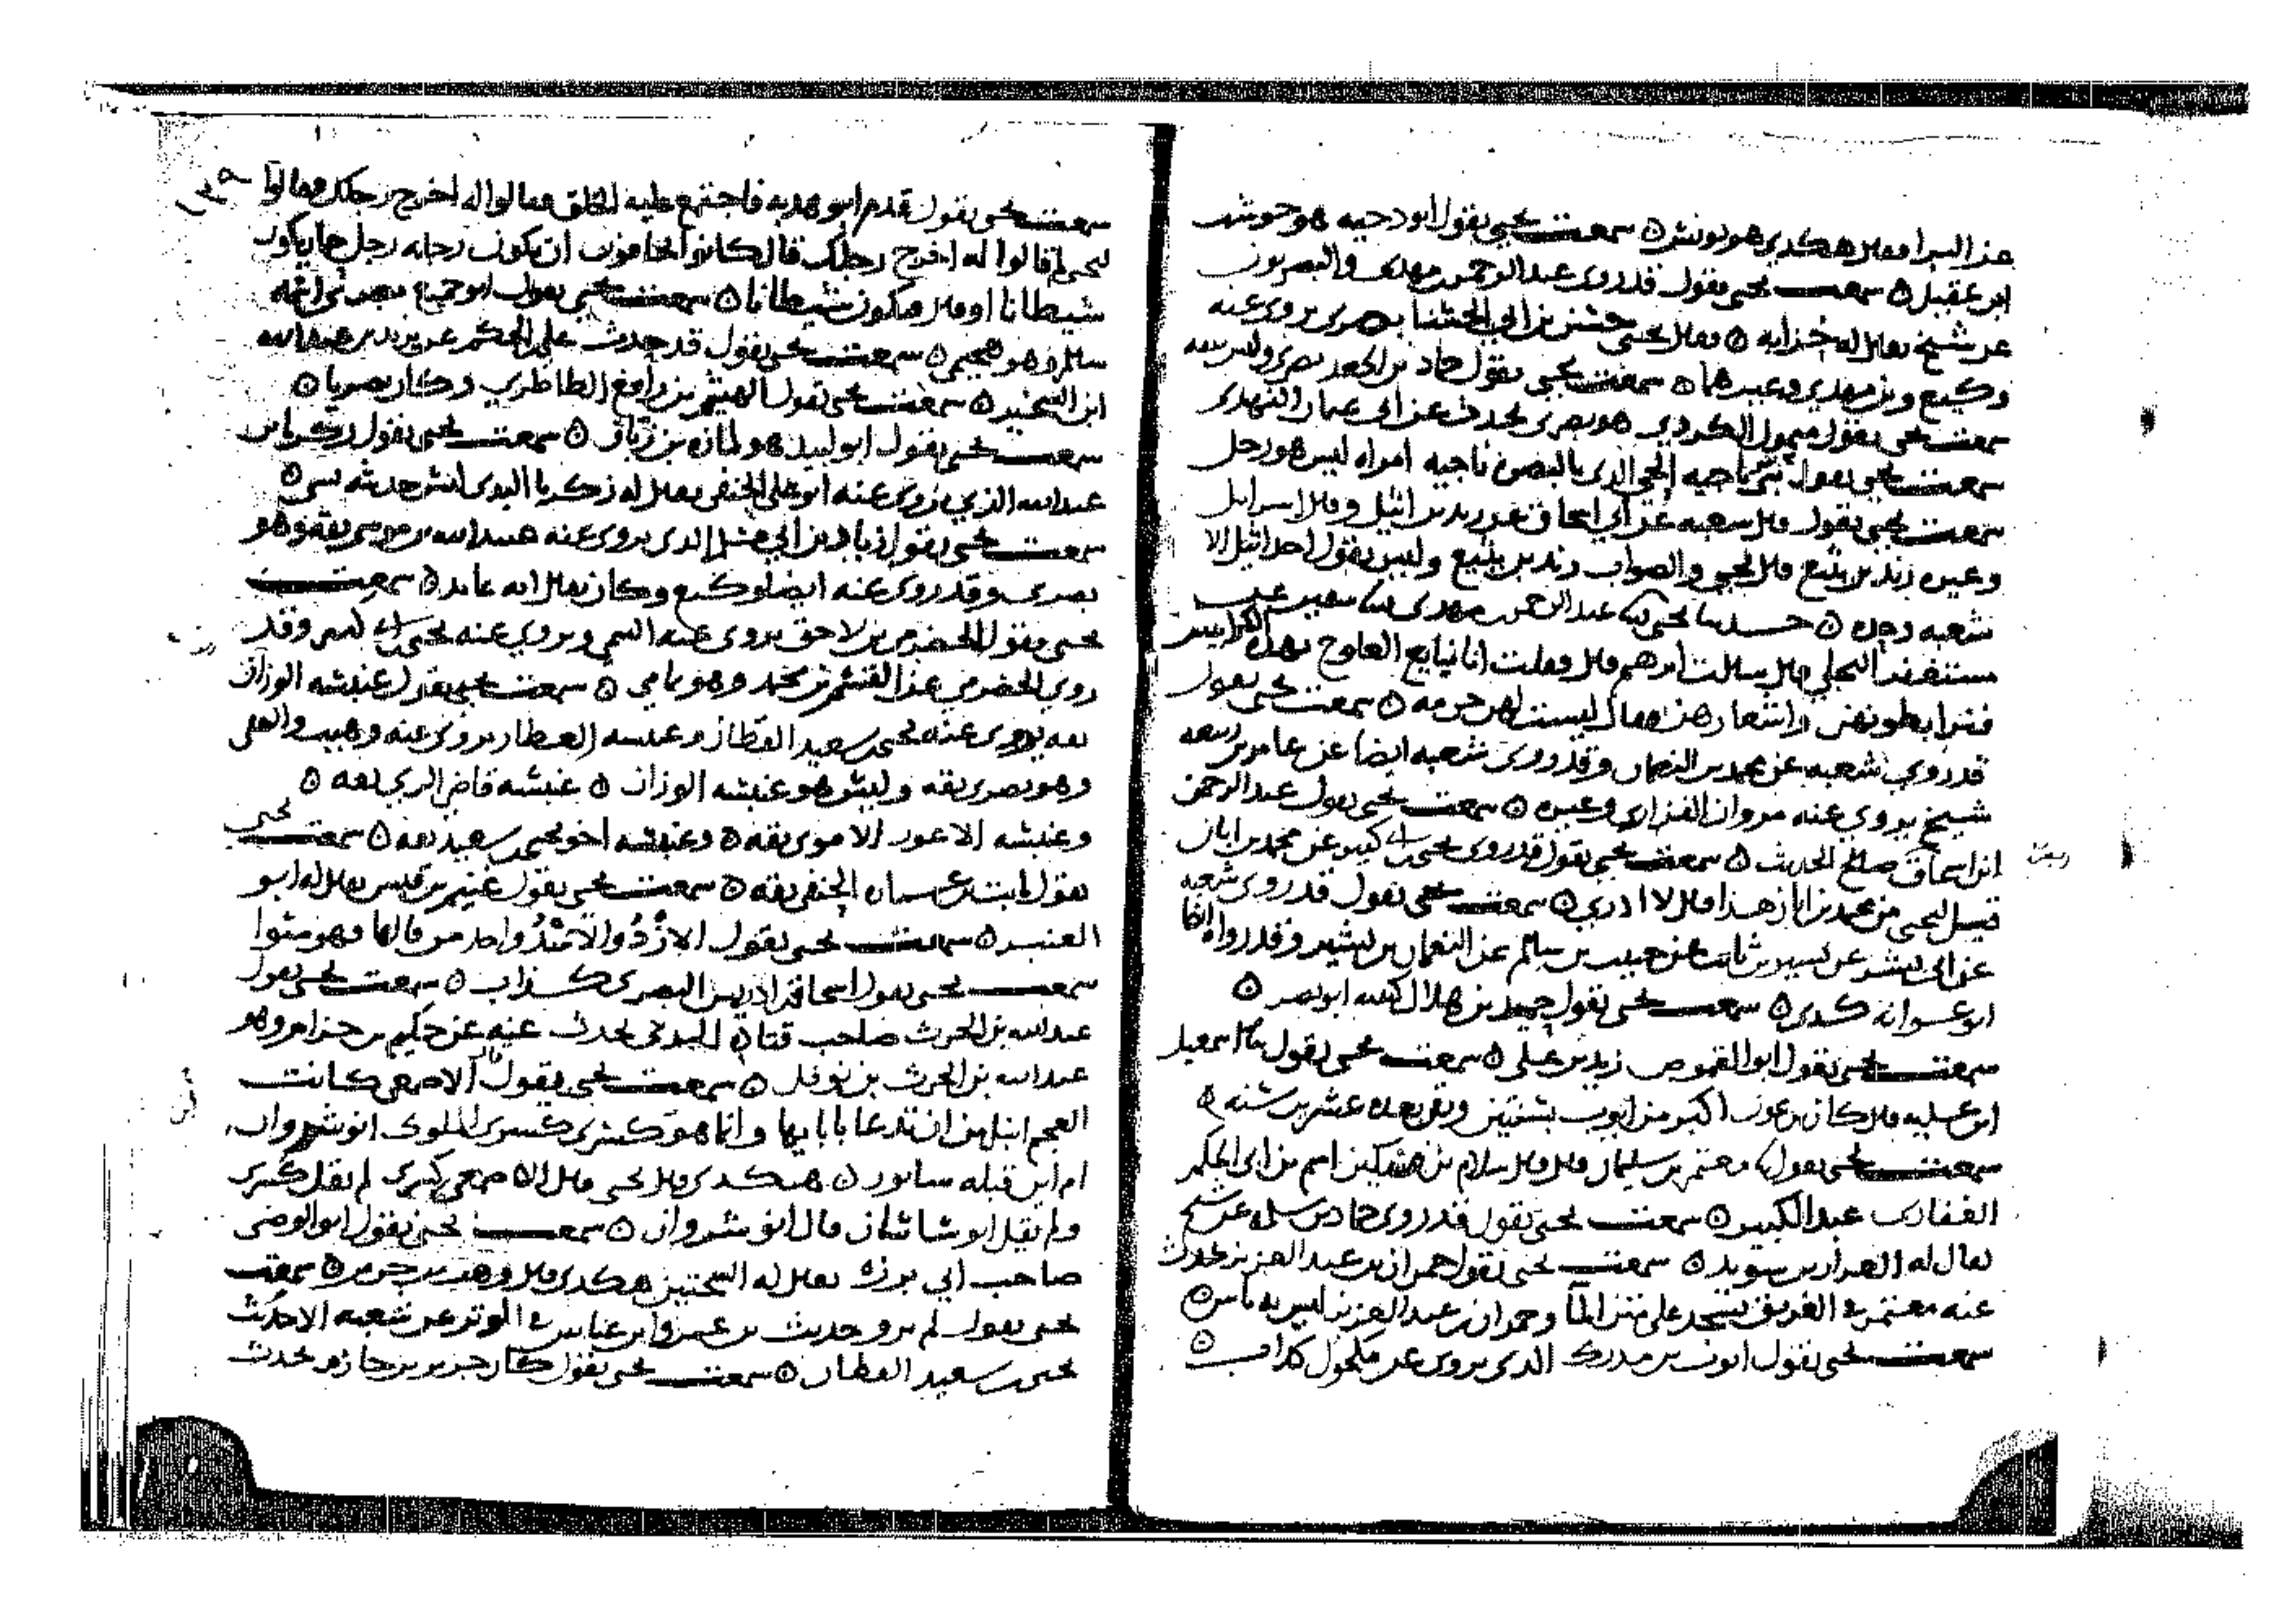 عن البراء فقال هكذي هو يونس ٥ سمعت يحيى يقول ابو دحيه هو حوشب
ابن عقيل ٥ سمعت يحيى يقول قد روى عبد الرحمن بن مهدي والبصريون
عن شيخ يقال له خزابه ٥ وقال يحيى حسن بن ابي الحسنا بصري يروي عنه
وكيع وبن مهدي وغيرهما ٥ سمعت يحيى يقول حماد بن الجعد بصري وليس بثقه
سمعت يحيى يقول ميمون الكردي هو بصري يحدث عن ابي عثمان النهدي
سمعت يحيى يقول بني ناجيه الحي الذي بالبصره ناجيه امراه ليس هو رجل
سمعت يحيى يقول قال شعبه عن ابي اسحاق عن زيد بن اثيل وقال اسرايل
وغيره زيد بن يثيع قال يحيى والصواب زيد بن يثيع وليس يقول احد اثيل الا
شعبه وحده ٥ حدثنا يحيى ثنا عبد الرحمن بن مهدي ثنا سفين عن
ابرهيم قال وقلت انا نبايع العلوج بهذه الكرابيس
فنرا بطونهن واشعارهن فقال ليست لهن حرمه ٥ سمعت يحيى يقول
قد روى شعبه عن محمد بن النعمان وقد روى شعبه ايضا عن عامر بن
شيخ يروي عنه مروان الفزاري وغيره ٥ سمعت يحيى يقول عبد الرحمن
ابن اسحاق صالح الحديث ٥ سمعت يحيى يقول قد روى يحيى بن ابي كثير عن محمد بن ابان
قيل ليحيى من محمد بن ابان هذا قال لا ادري ٥ سمعت يحيى يقول قد روى شعبه
عن ابي بشر عن بشير بن ثابت عن حبيب بن سالم عن النعمان بن بشير وقد رواه ايضا
ابو عوانه كذي ٥ سمعت يحيى يقول حميد بن هلال كنيته ابو نصر ٥
سمعت يحيى يقول ابو القموص زيد بن علي ٥ سمعت يحيى يقول ثنا اسمعيل
ابن عليه قال كان بن عون اكبر من ايوب بسنتين وبقي بعده عشرين سنه ٥
سمعت يحيى يقول ثنا معتمر بن سليمان قال قال سلام بن مسكين اسم بن ابي الحكم
الغفاري عبد الكبير ٥ سمعت يحيى يقول قد روى حماد بن سلمه عن شيخ
يقال له بن سويد ٥ سمعت يحيى يقول حمران بن عبد العزيز يحدث
عنه معتمر في الغريق يسجد على متن الما وحمران بن عبد العزيز ليس به باس ٥
سمعت يحيى يقول ايوب بن مدرك الذي يروي عن مكحول كذاب ٥
سمعت يحيى يقول قدم ابو هدبه فاجتمع عليه الخلق فقالوا له اخرج رجلك فقالوا
ليحيى لم قالوا له اخرج رجلك قال كانوا يخافون ان تكون رجله رجل حمار يكون
شيطانا او قال فيكون شيطانا ٥ سمعت يحيى يقول ابو
سالم وهو هجيمي ٥ سمعت يحيى يقول قد حدث علي بن الحكم عن يزيد بن عبد الله
ابن الشخير ٥ سمعت يحيى يقول الهيثم بن رافع الطاطري وكان بصريا ٥
سمعت يحيى يقول ابو لبيد هو لمازه بن زبار ٥ سمعت يحيى يقول زكريا بن
عبد الله الذي يروي عنه ابو علي الحنفي يقال له زكريا البدي ليس حديثه بشي ٥
سمعت يحيى يقول زياد بن ابي مسلم الذي يروي عنه عبيد الله بن موسى ثقه وهو
بصري وقد روى عنه ايضا وكيع وكان يقال انه عابد ٥ سمعت
يحيى يقول الحضرمي بن لاحق يروي عنه التيمي ويروي عنه يحيى بن ابي كثير وقد
روى الحضرمي عن القسم بن محمد وهو يمامي ٥ سمعت يحيى يقول عنبسه الوزان
ثقه يروي عنه يحيى بن سعيد القطان وعنبسه العطار يروي عنه وهيب
وهو بصري ثقه وليس هو عنبسه الوزان ٥ عنبسه قاضي الري ثقه ٥
وعنبسه الاعور الاموي ثقه ٥ وعنبسه اخو يحيى بن سعيد ثقه ٥ سمعت يحيى
يقول ثابت بن عماره الحنفي ثقه ٥ سمعت يحيى يقول غنيم بن قيس يقال له ابو
العنبر ٥ سمعت يحيى يقول الازد والاسد واحد من قالها فهو سوا
سمعت يحيى يقول اسحاق بن ادريس البصري كذاب ٥ سمعت يحيى يقول
عبد الله بن الحرث صاحب قتاده الذي يحدث عنه عن حكيم بن حزام هو
عبد الله بن الحرث بن نوفل ٥ سمعت يحيى يقول قال الاصمعي كانت
العجم انبل من ان تدعا بابايها وانما هو كسرى كسرى الملوك انوشروان
ابن قبله سابور ٥ هكذي قال يحيى قال الاصمعي كسرى لم يقل كسرى
ولم يقل انوشاثان قال انوشروان ٥ سمعت يحيى يقول ابو الوضي
صاحب ابي برزه يقال له السحتني هكذي قال وهب بن جرير ٥ سمعت
يحيى يقول لم يرو حديث بن عمر وابن عباس في الوتر عن شعبه الا حديث
يحيى بن سعيد القطان ٥ سمعت يحيى يقول كان جرير بن حازم يحدث